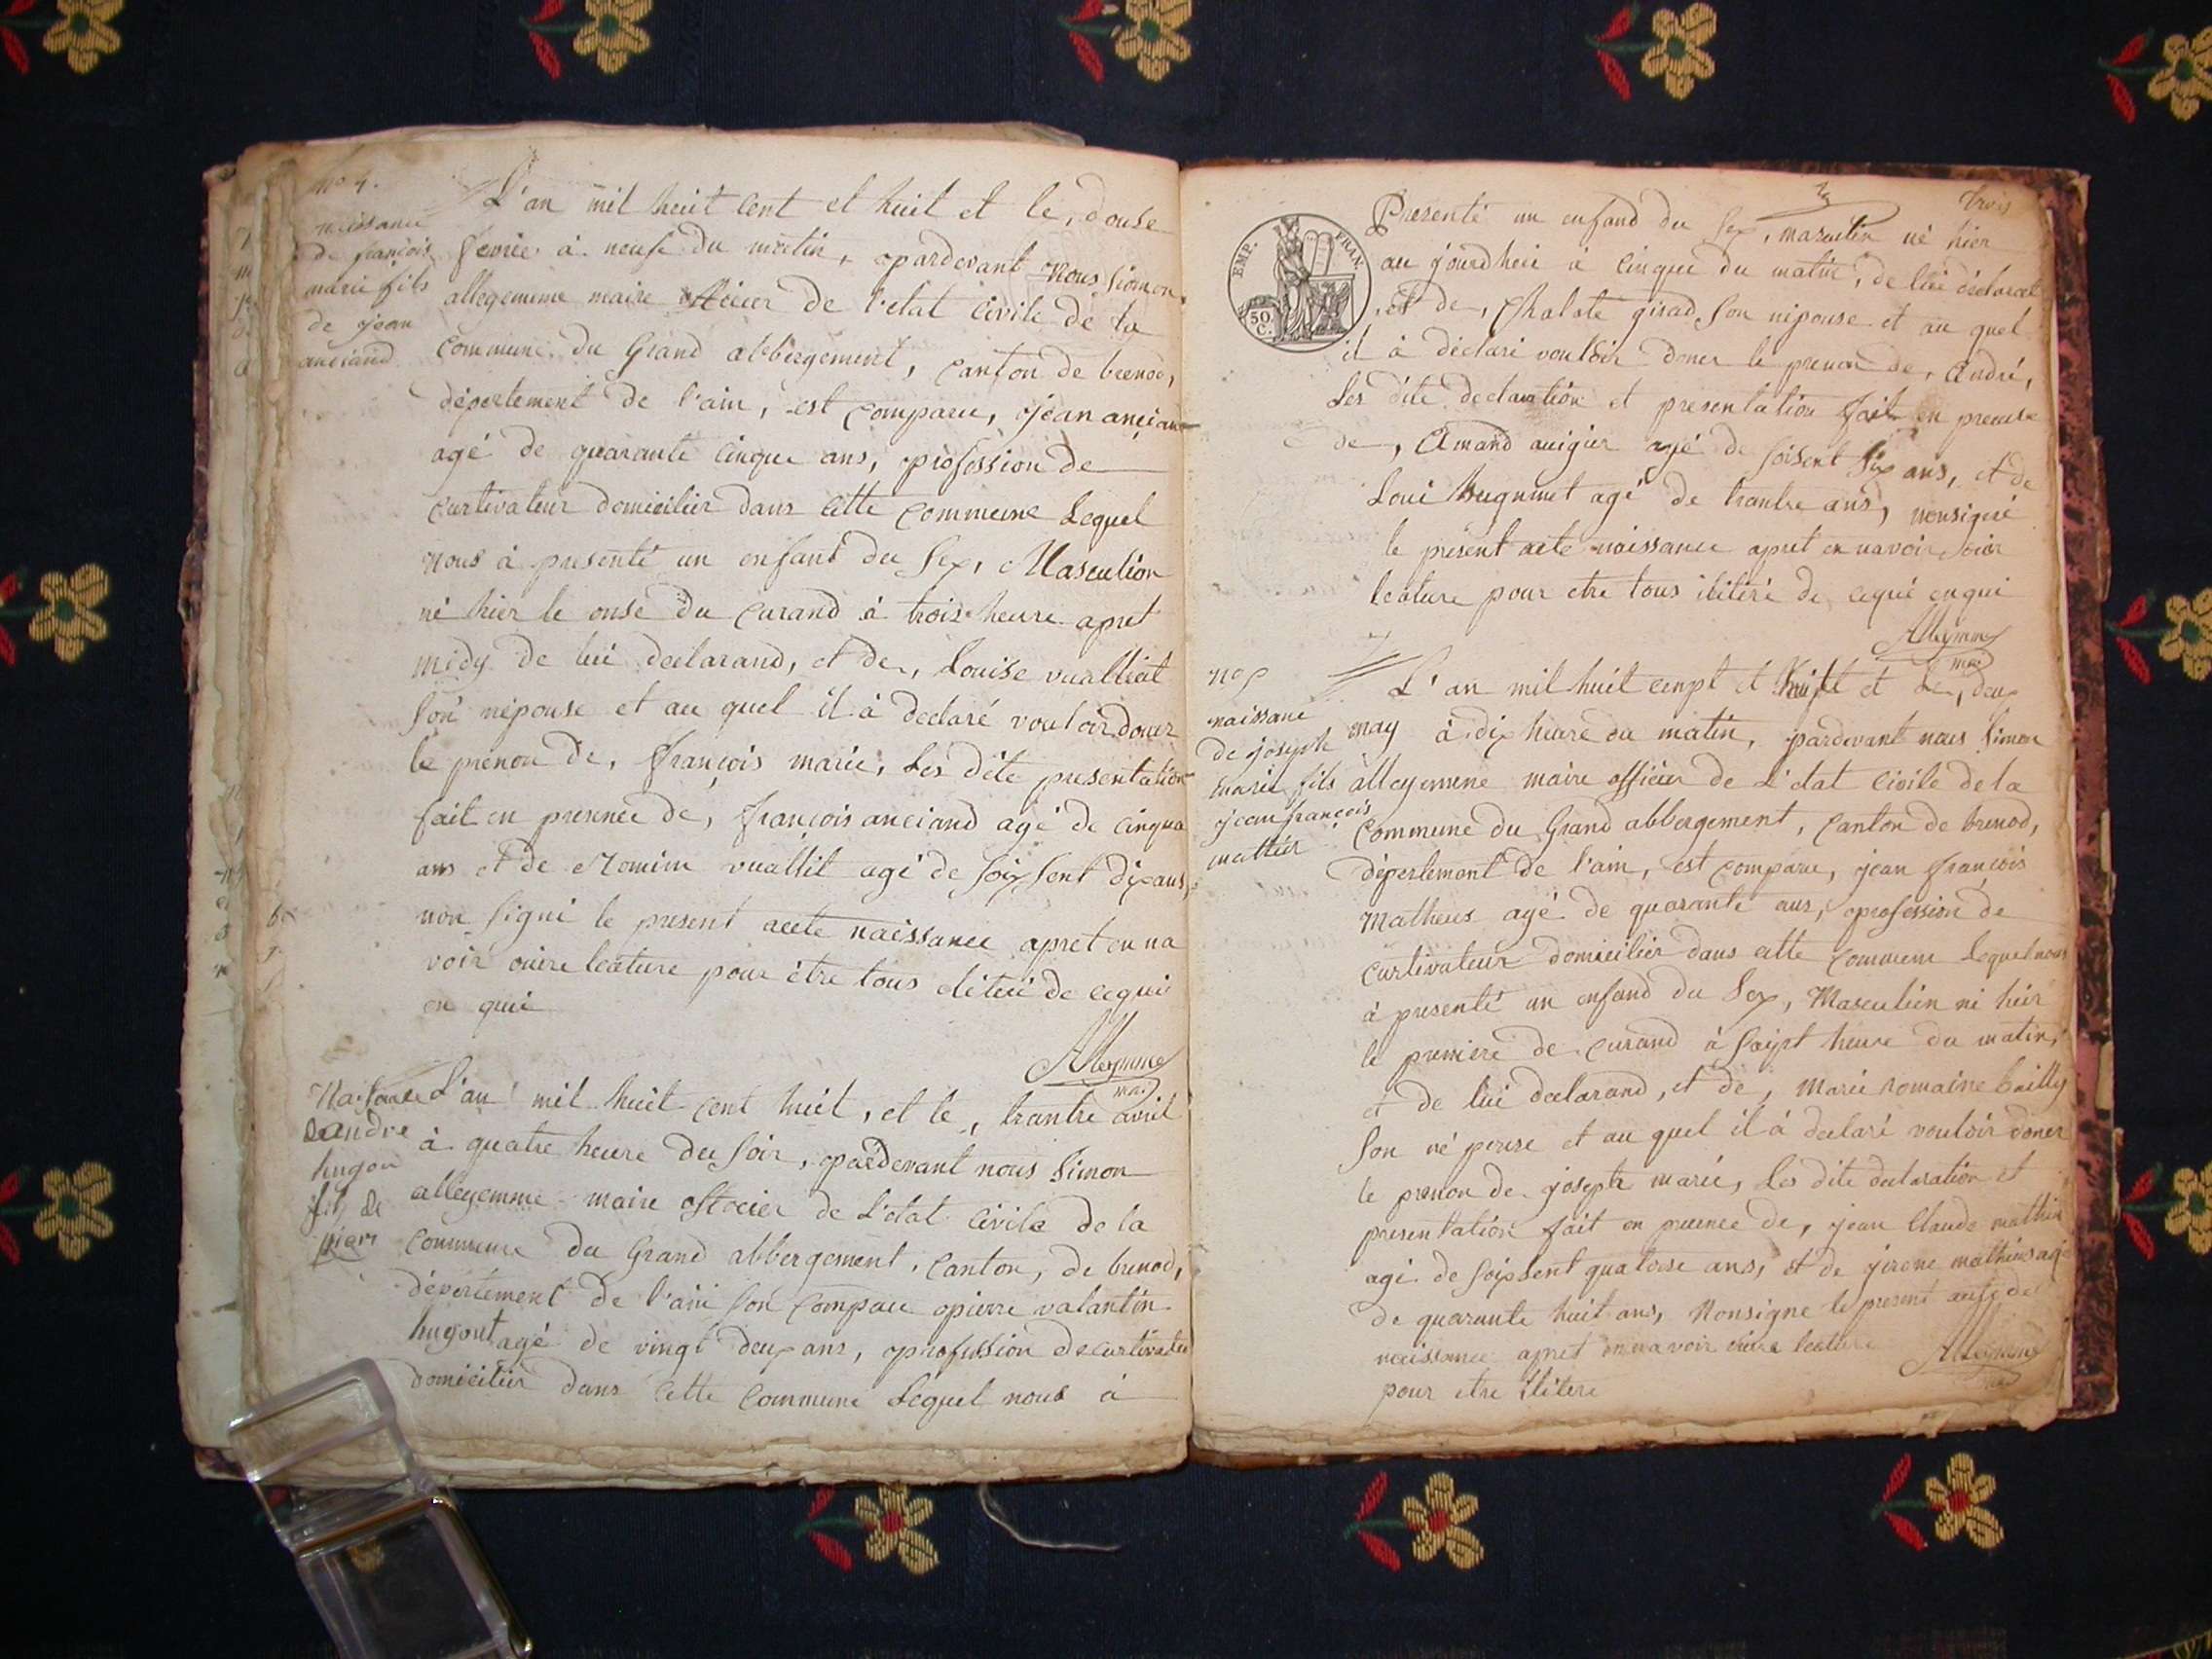 no 4.
naissance
de françois
marie fils
de jean
anciand
L'an mil huit cent et huit et le, douse
fevrie à neufe du matin, pardevant Nous Simon
allegemme maire officier de l'etat Civile de la
Commune du Grand abbergement, Canton de brenod,
département de l'ain, est Comparu, jean anciand
agé de quarante cinque ans, profession de
Curtivateur domicilier dans cette Commune Lequel
nous à presenté un enfant du Sex, Masculion
né hier le onse du Curand à trois heure apret
midy de lui declarand, et de, Louise vualliat
Son népouse et au quel il à declaré vouloir doner
le prenon de, françois marie, Les dite presentation
fait en presnce de, françois anciand agé de cinqua
ans et de Romim vuallit agé de soixsent dix ans,
non signé le present acete naissance apret en na
voir ouire leature pour être tous de cequi
en qui
Alleymme
mai
Naissance
deandre
hugon
fils de
piere
L'an mil huit cent huit, et le, trantre avril
à quatre heure du Soir, pardevant nous Simon
alleyemme maire officier de L'etat Civile de la
Commune du Grand abbergement, Canton, de brenod,
département de l'ain son Comparu pierre valantin
hugont agé de vingt deux ans, profession de curtivateur
domicilier dans cette Commune Lequel nous à
trois
EMP. FRAN.
50 C.
Presenté un enfand du Sex, masculin né hier
au jourdhui à cinque du matin, de lui declarand
et de, Chalote girad Son népouse et au quel
il à déclaré vouloir doner le prenon de, André,
Les dite declaration et presentation fait en presnse
de, Amand augier agé de soisent six ans, et de
Loui hugnuet agé de trantre ans, nonsigné
le présent acte naissance apret en navoir oiir
leature pour etre tous ilitéré de cequé enqui
Alleymme
mai
no 5
naissance
de joseph
marie fils
jean françois
mathieu
L'an mil huit cenpt et huit et Le, deux
may à dix heure du matin, pardevant nous Simon
alleyemme maire officier de L'etat Civile de la
Commune du Grand abbergement, Canton de brenod,
département de l'ain, est Comparu, jean françois
Matheus agé de quarante ans, profession de
Curtivateur domicilier dans cette Commune Lequel nous
à presenté un enfand du Sex, Masculien né hier
le premiere de curand à saipt heure du matin,
et de lui declarand, et de, Marie romaine bailly
Son népouse et au quel il à declaré vouloir doner
le prenon de joseph marie, Les dite declaration et
presentation fait en presnce de, jean Claude mathieu
agé de soixsent quatorse ans, et de jirone mathieu agé
de quarante huit ans, Nonsigne le present acte de
naissance apret en navoir ouire leature
pour etre ilitere
Alleymme
mai